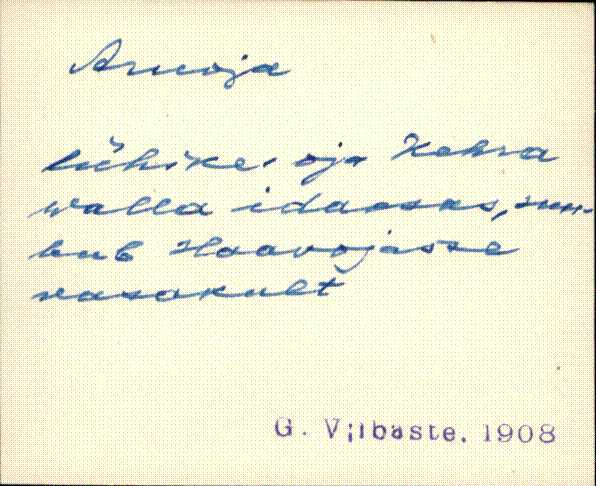 Aruoja
Lühike oja Kehra
walla idaosas, suu-
bub Haavojasse
vasakult
G. Vilbaste. 1908